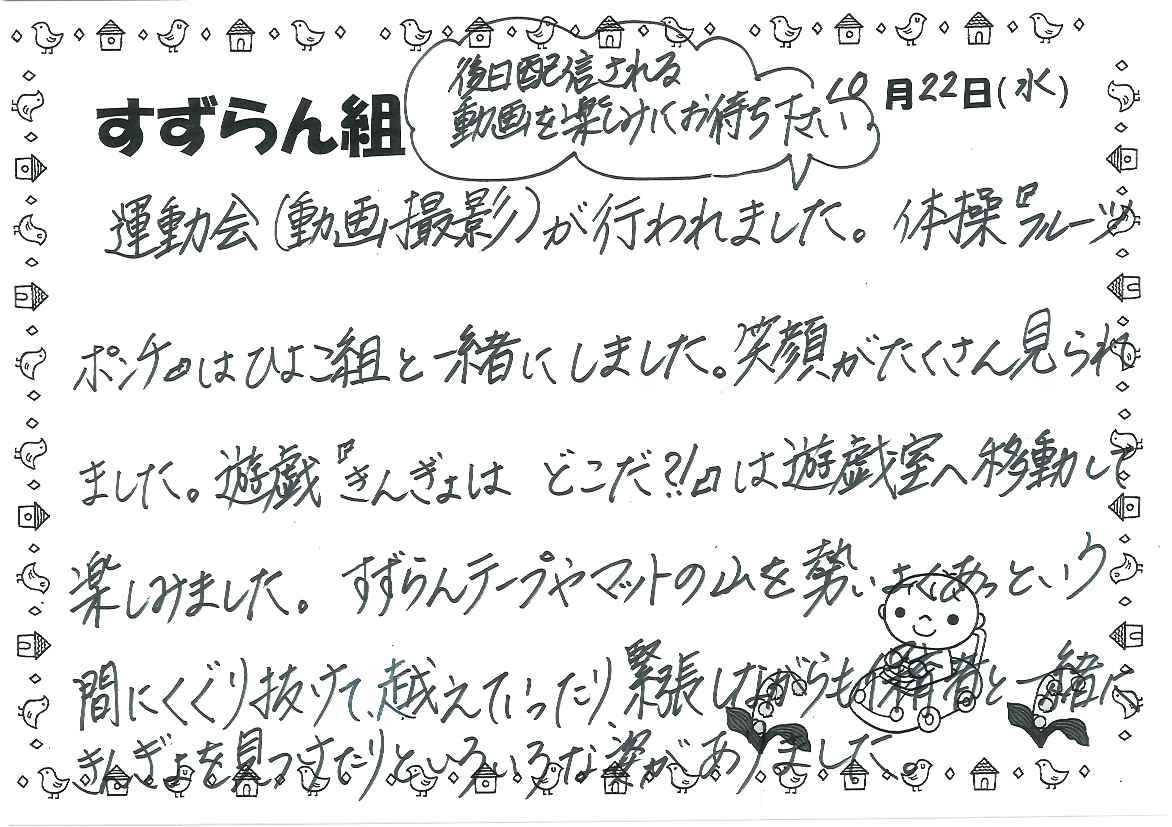 すずらん組
後日配信される
動画を楽しみにお待ち下さい。
10月22日(水)
運動会(動画撮影)が行われました。体操『フルーツ
ポンチ』はひよこ組と一緒にしました。笑顔がたくさん見られ
ました。遊戯『きんぎょは どこだ?!』は遊戯室へ移動して
楽しみました。すずらんテープやマットの山を勢いよくあっという
間にくぐり抜けて、越えていったり、緊張しながらも保育者と一緒に
きんぎょを見つけたりといろいろな姿がありました。